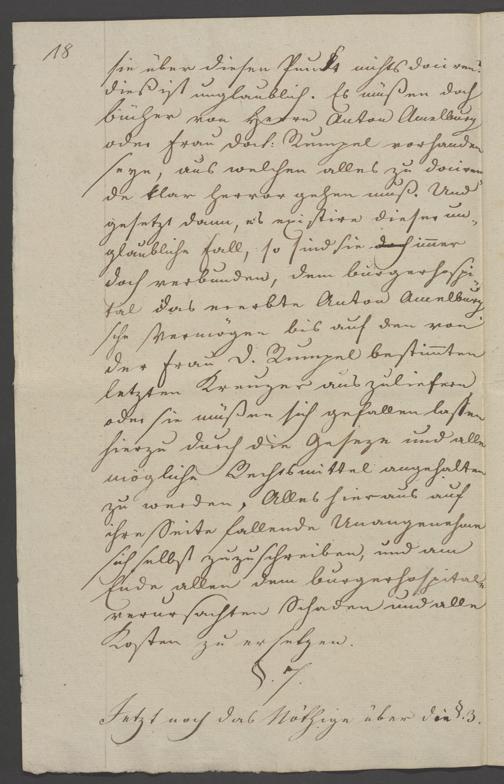 18
sie über diesen Punkt nichts dociren?
dieß ist unglaublich. Es müßen doch
bücher von Herrn Anton Amelburg
oder Frau Doct: Rumpel vorhanden
seyn, aus welchen alles zu dociren
de klar hervor gehen muß. Und
gesetzt dann, es existire dieser un-
glaubliche Fall, so sind sie doch immer
doch verbunden, dem bürgerhospi
tal das ererbte Anton Amelburg
sche Vermögen bis auf den von
der Frau D. Rumpel bestimmten
letzten Kreuzer auszuliefern
oder sie müßen sich gefallen lassen
hierzu durch die Geseze und alle
mögliche Rechtsmittel angehalten
zu werden, Alles hieraus auf
ihre Seite fallende Unangenehme
sich selbst zuzuschreiben, und am
Ende allen dem bürgerhospital
verursachten Schaden und alle
Kosten zu ersetzen.
§. 7.
Jetzt noch das Nöthige über die §. 3.